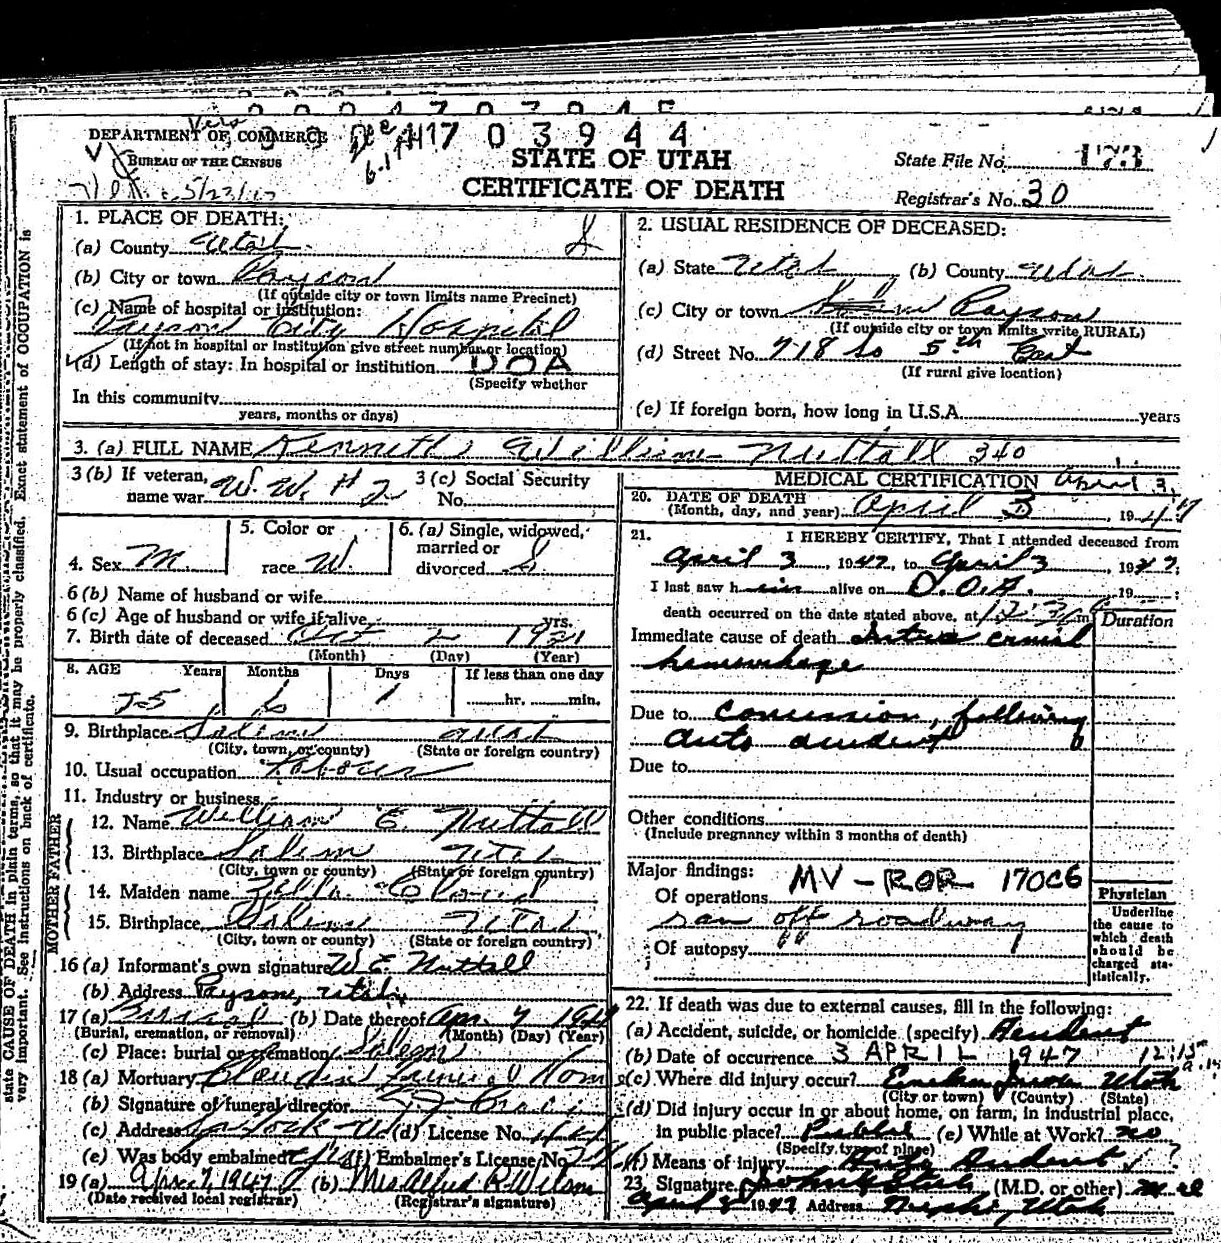 17 0 3 9 4 4
DEPARTMENT OF COMMERCE
BUREAU OF THE CENSUS
STATE OF UTAH
CERTIFICATE OF DEATH
State File No. 173
Registrar's No. 30
state CAUSE OF DEATH in plain terms, so that it may be properly classified. Exact statement of OCCUPATION is
very important. See instructions on back of certificate.
1. PLACE OF DEATH:
(a) County Utah
(b) City or town Payson
(If outside city or town limits name Precinct)
(c) Name of hospital or institution:
Payson City Hospital
(If not in hospital or institution give street number or location)
(d) Length of stay: In hospital or institution DOA
(Specify whether
In this community
years, months or days)
2. USUAL RESIDENCE OF DECEASED:
(a) State Utah (b) County Utah
(c) City or town Payson
(If outside city or town limits write RURAL)
(d) Street No. 718 So 5th East
(If rural give location)
(e) If foreign born, how long in U.S.A. years
3. (a) FULL NAME Kenneth William Nuttall 340
3 (b) If veteran, name war W. W. # 2
3 (c) Social Security No.
4. Sex M.
5. Color or race W.
6. (a) Single, widowed, married or divorced S
6 (b) Name of husband or wife
6 (c) Age of husband or wife if alive yrs.
7. Birth date of deceased Oct 2 1921
(Month) (Day) (Year)
8. AGE Years Months Days If less than one day
25 6 1 hr. min.
9. Birthplace Salem Utah
(City, town, or county) (State or foreign country)
10. Usual occupation Laborer
11. Industry or business
FATHER
12. Name William E. Nuttall
13. Birthplace Salem Utah
(City, town or county) (State or foreign country)
MOTHER
14. Maiden name Zella
15. Birthplace Salem Utah
(City, town or county) (State or foreign country)
16 (a) Informant's own signature W. E. Nuttall
(b) Address Payson, Utah
17 (a) Burial (b) Date thereof Apr. 7 1947
(Burial, cremation, or removal) (Month) (Day) (Year)
(c) Place: burial or cremation Salem
18 (a) Mortuary Claudin Funeral Home
(b) Signature of funeral director
(c) Address (d) License No.
(e) Was body embalmed (f) Embalmer's License No.
19 (a) April 7 1947 (b) Mrs Alfred R. Wilson
(Date received local registrar) (Registrar's signature)
MEDICAL CERTIFICATION April 3,
20. DATE OF DEATH
(Month, day, and year) April 3, 1947
21. I HEREBY CERTIFY, That I attended deceased from
April 3, 1947, to April 3, 1947;
I last saw him alive on D.O.A. 19 ;
death occurred on the date stated above, at 12:30 m
Duration
Immediate cause of death Intra cranial
hemorrhage
Due to concussion, following
auto accident
Due to
Other conditions
(Include pregnancy within 3 months of death)
Major findings: MV - ROR 170C6
Of operations
ran off roadway
Of autopsy "
Physician
Underline the cause to which death should be charged statistically.
22. If death was due to external causes, fill in the following:
(a) Accident, suicide, or homicide (specify) Accident
(b) Date of occurrence 3 APRIL 1947 12:15
(c) Where did injury occur? Eureka Juab Utah
(City or town) (County) (State)
(d) Did injury occur in or about home, on farm, in industrial place,
in public place? Public (e) While at Work? no
(Specify type of place)
(f) Means of injury Auto Accident
23. Signature (M.D. or other) M.D.
April 8 1947 Address Nephi, Utah